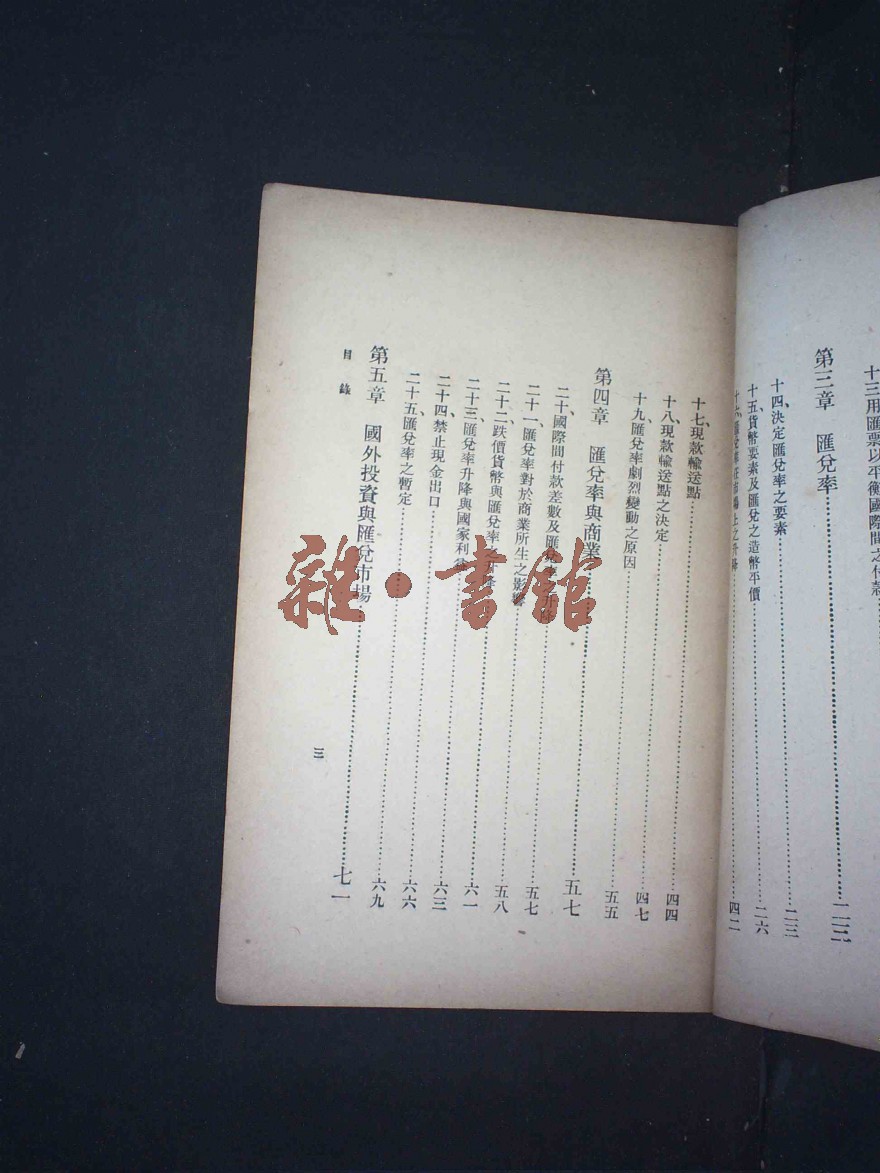 十三、用匯票以平衡國際間之付款
第三章 匯兌率……二三
十四、決定匯兌率之要素……二三
十五、貨幣要素及匯兌之造幣平價……二六
十六、匯兌率在市場上之升降……四二
十七、現款輸送點……四四
十八、現款輸送點之決定……四七
十九、匯兌率劇烈變動之原因……五五
第四章 匯兌率與商業……五七
二十、國際間付款差數及匯兌升降……五七
二十一、匯兌率對於商業所生之影響……五八
二十二、跌價貨幣與匯兌率之升降……六一
二十三、匯兌率升降與國家利益……六三
二十四、禁止現金出口……六六
二十五、匯兌率之暫定……六九
第五章 國外投資與匯兌市場……七一
目錄
三
雜·書館